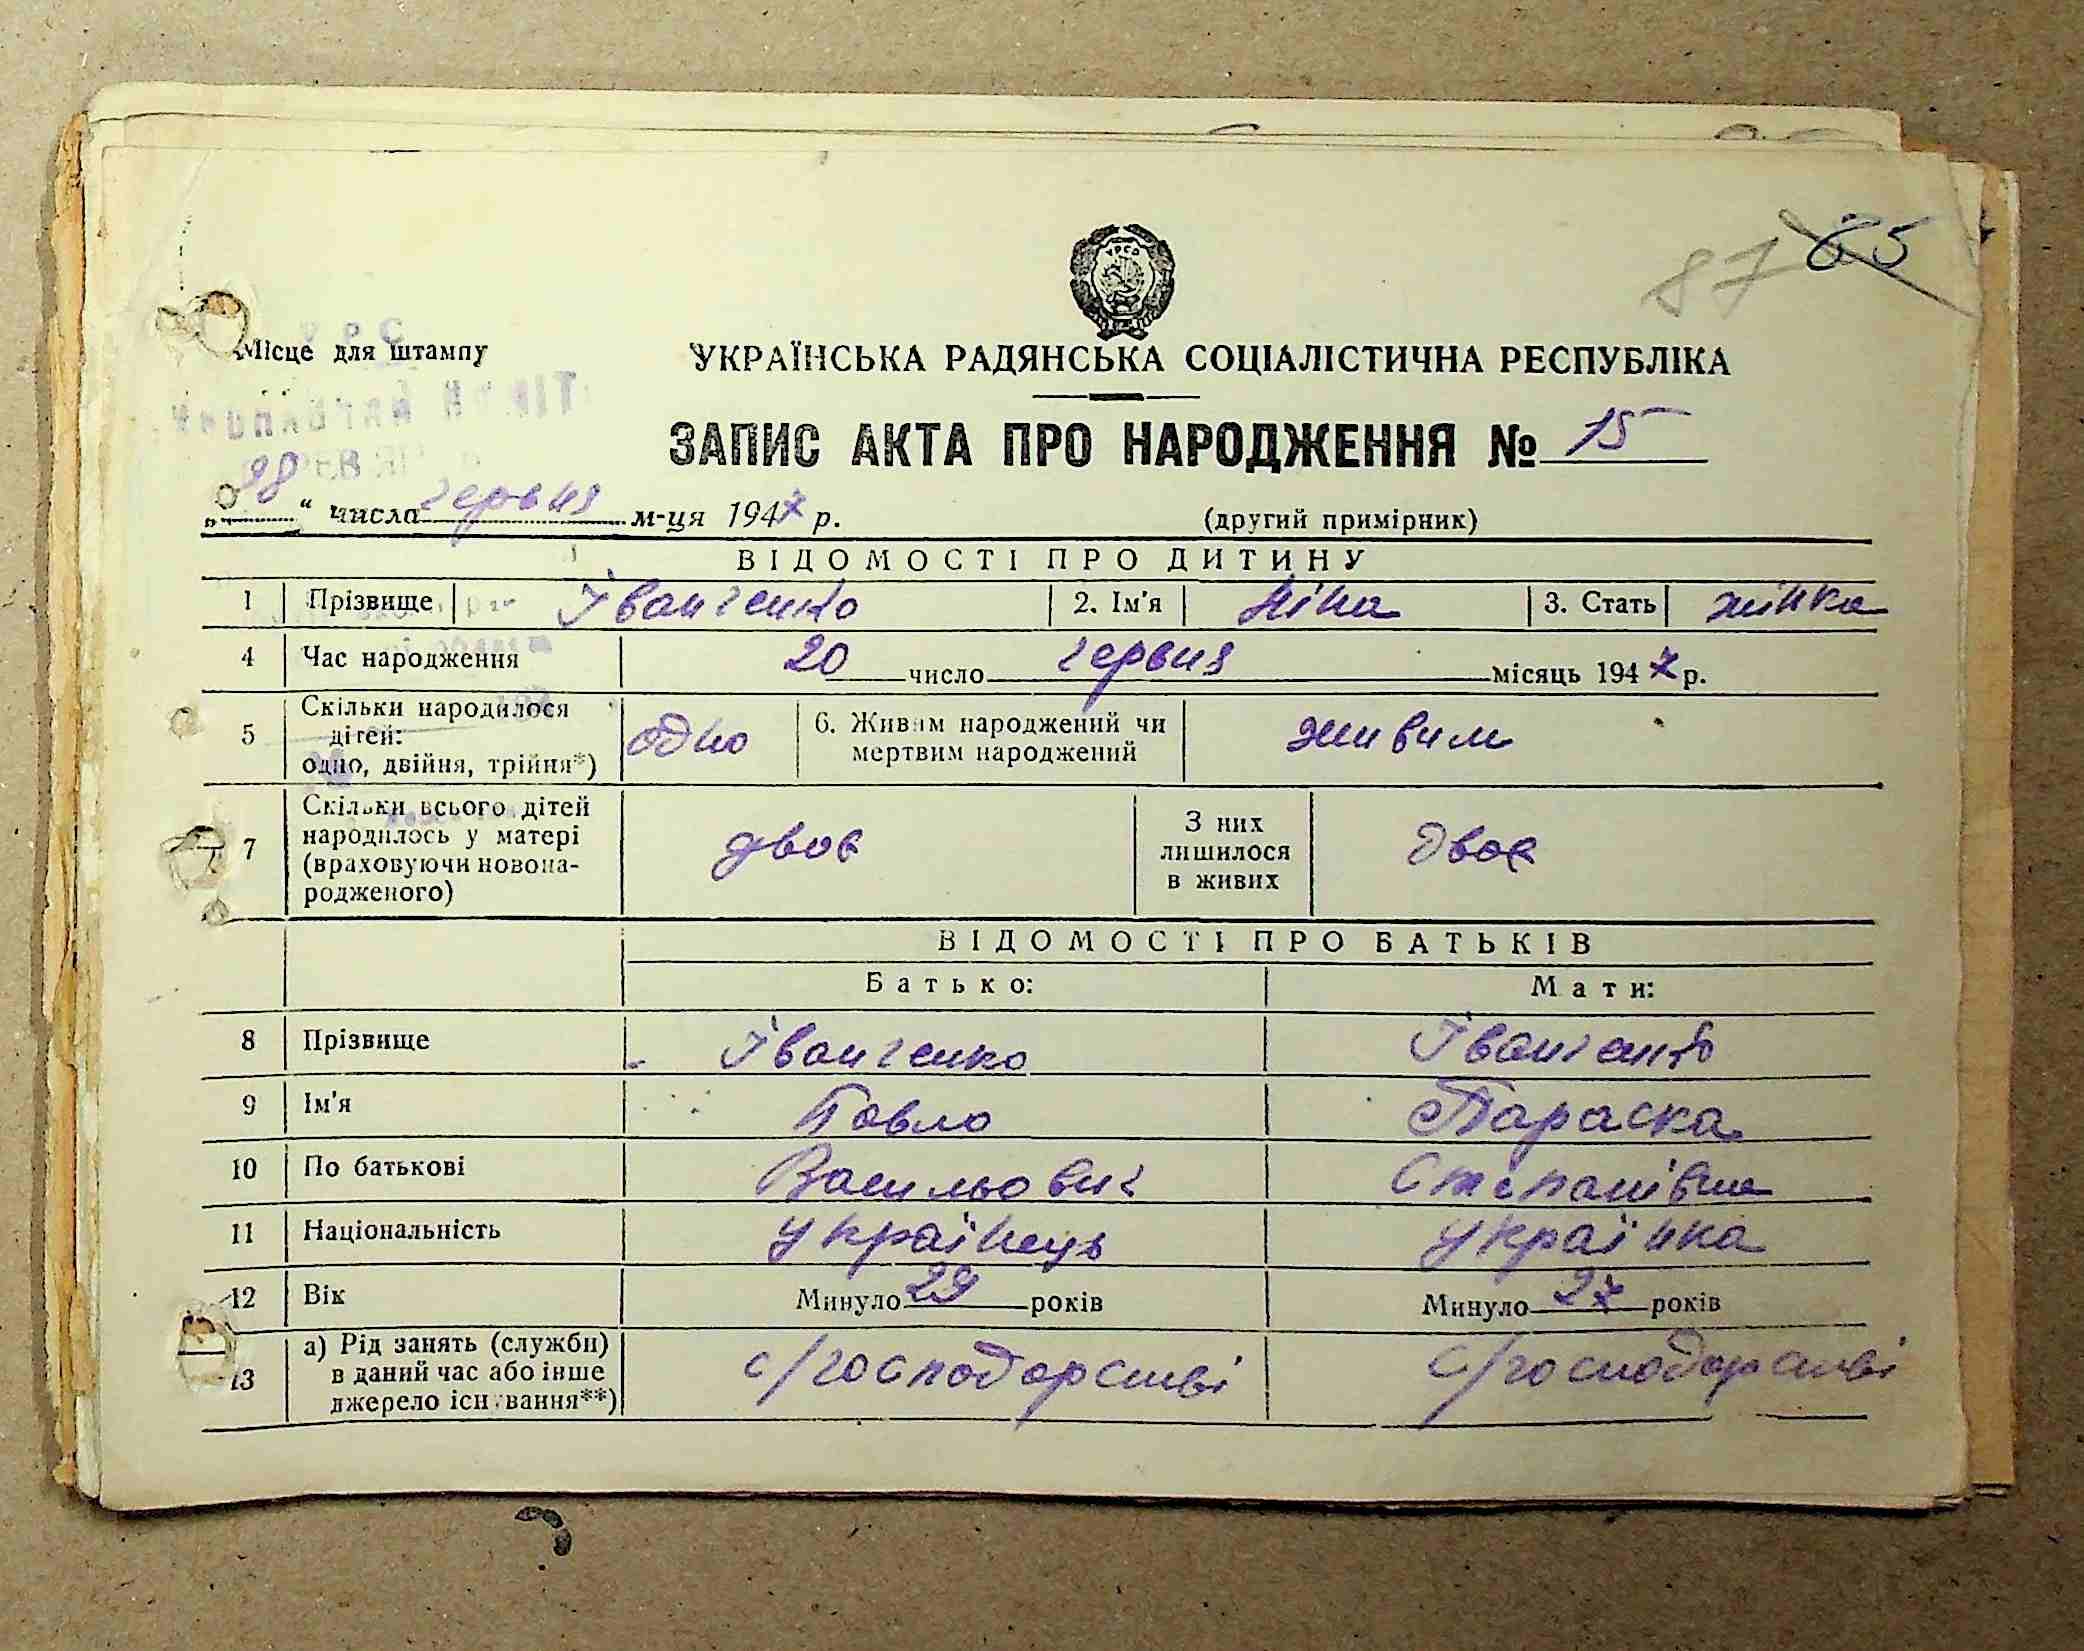 87 65
УРСР
Місце для штампу
УКРАЇНСЬКА РАДЯНСЬКА СОЦІАЛІСТИЧНА РЕСПУБЛІКА
ЗАПИС АКТА ПРО НАРОДЖЕННЯ № 15
„28“ числа червня м-ця 1947 р. (другий примірник)
ВІДОМОСТІ ПРО ДИТИНУ
1 Прізвище Іванченко 2. Ім'я Ніна 3. Стать жінка
4 Час народження 20 число червня місяць 1947 р.
5 Скільки народилося дітей: одно, двійня, трійня*) одно 6. Живим народжений чи мертвим народжений живим
7 Скільки всього дітей народилось у матері (враховуючи новонародженого) двоє З них лишилося в живих двоє
ВІДОМОСТІ ПРО БАТЬКІВ
Батько: Мати:
8 Прізвище Іванченко Іванченко
9 Ім'я Павло Параска
10 По батькові Васильович Степанівна
11 Національність українець українка
12 Вік Минуло 29 років Минуло 27 років
13 а) Рід занять (служби) в даний час або інше джерело існування**) с/господарстві с/господарстві